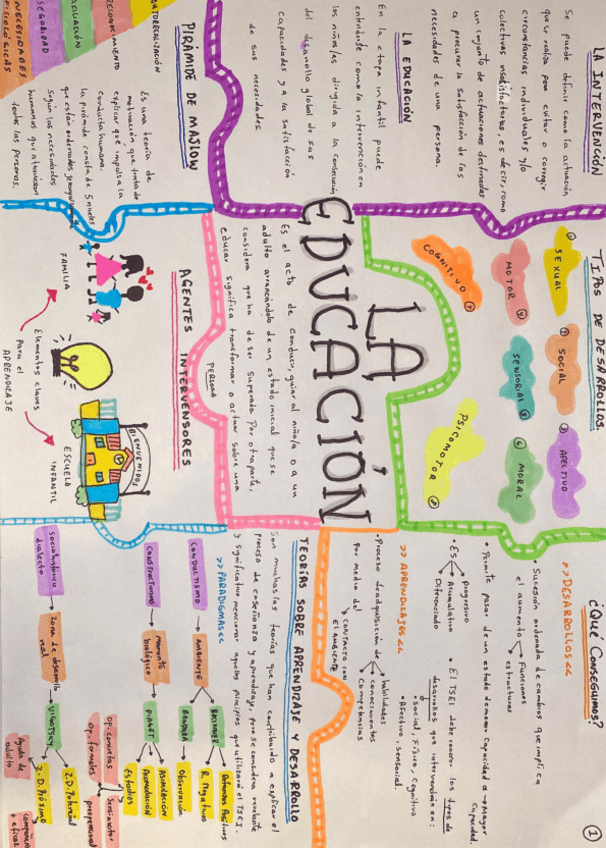 LA INTERVENCIÓN
Se puede definir como la actuación
que se realiza para evitar o corregir
circunstancias individuales y/o
colectivas insatisfactorias, es decir, como
un conjunto de actuaciones destinadas
a procurar la satisfacción de las
necesidades de una persona.
LA EDUCACIÓN
En la etapa infantil puede
entenderse como la intervención en
los niños/as dirigida a la consecución
del desarrollo global de sus
capacidades y a la satisfacción
de sus necesidades.
PIRÁMIDE DE MASLOW
AUTORREALIZACIÓN
RECONOCIMIENTO
AFILIACIÓN
SEGURIDAD
NECESIDADES
FISIOLÓGICAS
Es una teoría de
motivación que trata de
explicar que impulsa la
conducta humana.
la pirámide consta de 5 niveles
que están ordenados jerárquicamente
según las necesidades
humanas que atraviesan
todas las personas.
TIPOS DE DESARROLLOS
① SEXUAL
② SOCIAL
③ AFECTIVO
④ MOTOR
⑤ SENSORIAL
⑥ MORAL
⑦ COGNITIVO
⑧ PSICOMOTOR
LA
EDUCACIÓN
Es el acto de conducir, guiar al niño/a o a un
adulto arrancándolo de un estado inicial que se
considera que ha de ser superado. Por otra parte,
educar significa transformar o actuar sobre una
PERSONA
AGENTES INTERVENSORES
FAMILIA
Elementos claves
Para el
APRENDIZAJE
BIENVENIDOS
ESCUELA
INFANTIL
¿Qué CONSEGUIMOS?
①
>> DESARROLLOS <<
• Sucesión ordenada de cambios que implica
el aumento
Funciones
estructuras
• Permite pasar de un estado de menor capacidad a → mayor
Capacidad.
• Es
progresivo
Acumulativo
Diferenciado
• El TSEI debe conocer los tipos de
desarrollos que intervendrá en:
• social, Físico, Cognitivo
• Afectivo, sensorial.
>> APRENDIZAJES <<
• Proceso de adquisición de
habilidades
conocimientos
Competencias
por medio del
CONTACTO CON
EL AMBIENTE
TEORÍAS SOBRE APRENDIZAJE Y DESARROLLO
Son muchas las teorías que han contribuido a explicar el
proceso de enseñanza y aprendizaje, pero se considera relevante
y significativo mencionar aquellos principios que utilizará el TSEI.
>> PARADIGMAS <<
CONDUCTISMO
AMBIENTE
SKINNER
R. Negativos
BANDURA
Observación
CONSTRUCTIVISMO
Momento
biológico
PIAGET
ASIMILACIÓN
ACOMODACIÓN
Estadios
Sensiomotor
preoperacional
Op. concretas
Op. formales
Sociohistórico
dialecto
Zona de desarrollo
real
VIGOTSKY
Z.D. Potencial
Z.D. Próximo
Ayuda de
adulto
compañero
+ eficaz